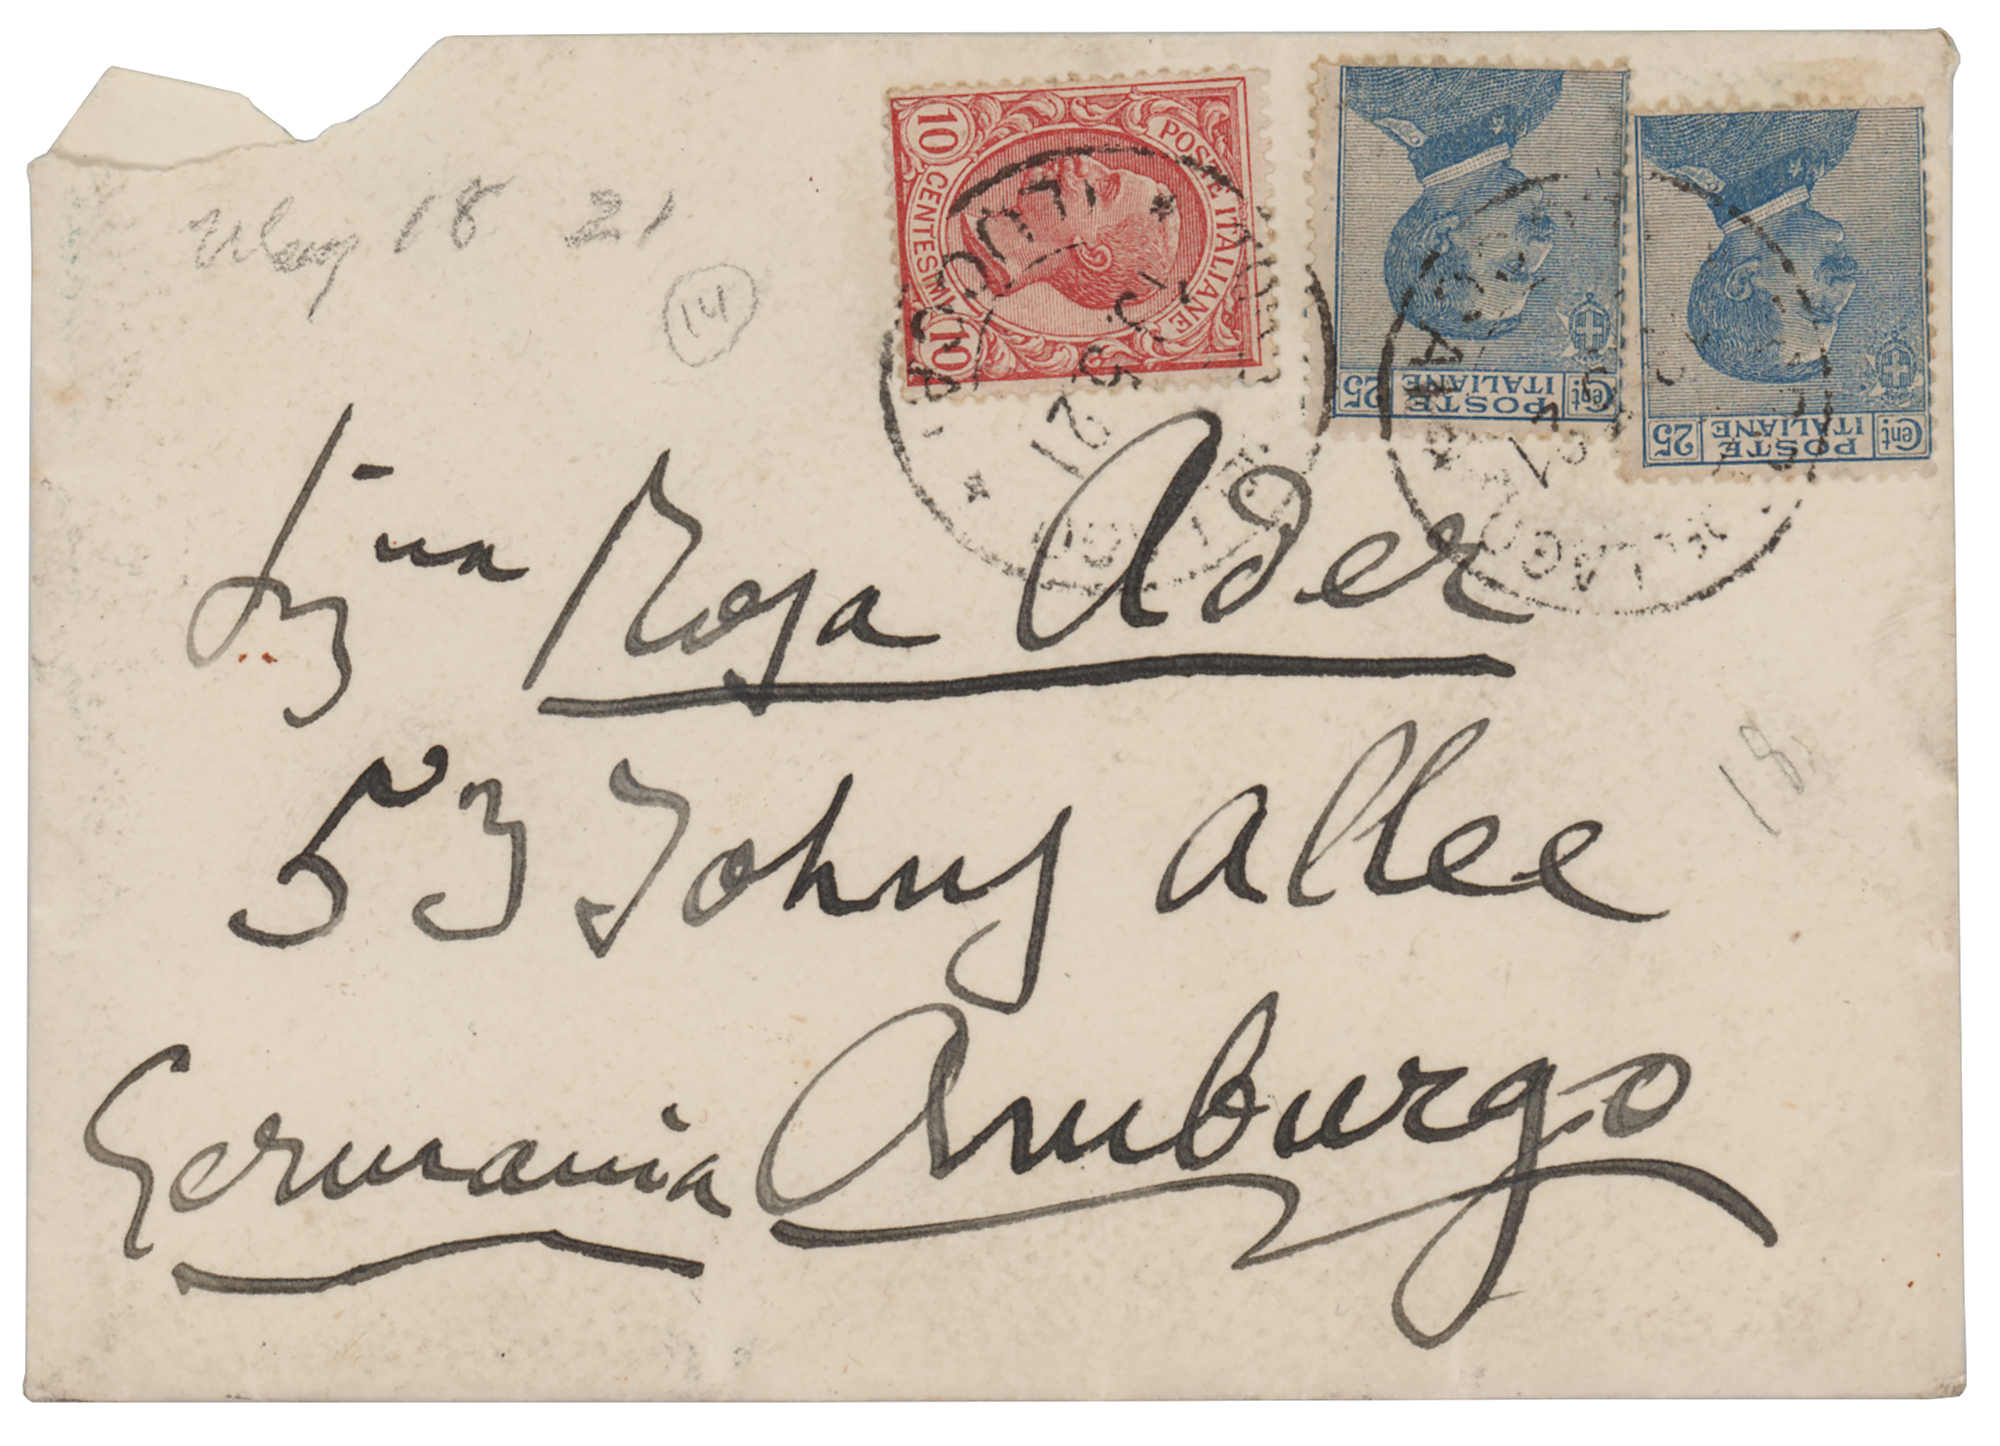 May 18 21
14
POSTE ITALIANE
10 CENTESIMI 10
Cent POSTE ITALIANE 25
Cent POSTE ITALIANE 25
5 21
Sigⁿᵃ Rosa Ader
53 Johns allee
18
Germania Amburgo